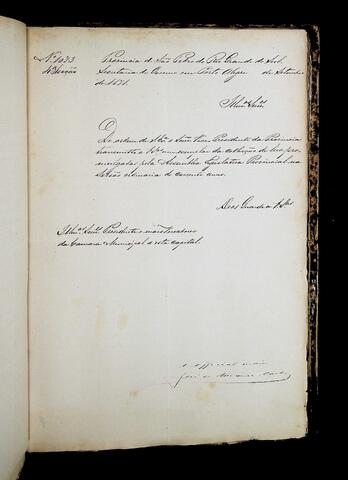 Nº 1073
4ª Secção
Provincia de São Pedro do Rio Grande do Sul.
Secretaria do Governo em Porto Alegre de Setembro
de 1871.
Illmos Snrs
De ordem de S. Exª o Snr Vice Presidente da Provincia
transmitto a VSas um exemplar da collecção de Leis pro-
mulgadas pela Assembléa Legislativa Provincial na
Sessão ordinaria do corrente anno.
Deos Guarde a VSas
Illmos Snrs Presidente e mais Vereadores
da Camara Municipal d'esta capital.
O Official maior
José de